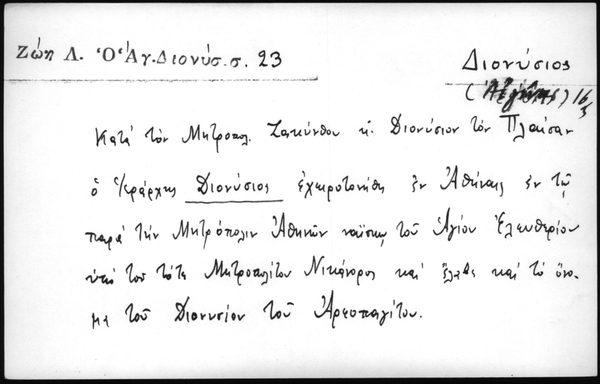 Ζώη Λ. Ὁ Ἅγ. Διονύσ. σ. 23
Διονύσιος
Κατά τὸν Μητροπολ. Ζακύνθου κ. Διονύσιον τὸν Πλαίσαν
ὁ Ἱεράρχης Διονύσιος ἐχειροτονήθη ἐν Ἀθήναις ἐν τῷ
παρά τήν Μητρόπολιν Ἀθηνῶν ναΐσκῳ τοῦ Ἁγίου Ἐλευθερίου
ὑπό τοῦ τότε Μητροπολίτου Νικάνορος καί ἔλαβε καί τό ὄνο-
μα τοῦ Διονυσίου τοῦ Ἀρεοπαγίτου.